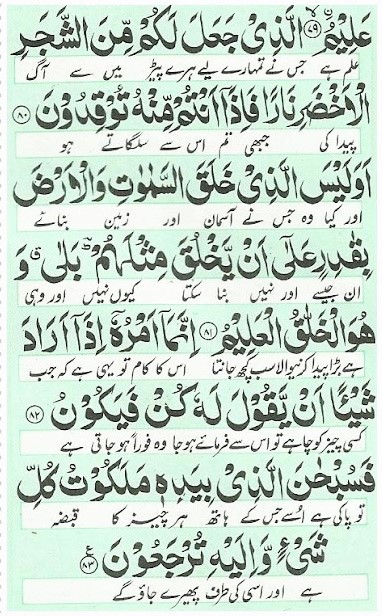 عَلِيْمٌ ﴿۷۹﴾ الَّذِىْ جَعَلَ لَكُمْ مِّنَ الشَّجَرِ
علم ہے جس نے تمہارے لیے ہرے پیڑ میں سے آگ
الْاَخْضَرِ نَارًا فَاِذَاۤ اَنْتُمْ مِّنْهُ تُوْقِدُوْنَ ﴿۸۰﴾
پیدا کی جبھی تم اس سے سلگاتے ہو
اَوَلَيْسَ الَّذِىْ خَلَقَ السَّمٰوٰتِ وَالْاَرْضَ
اور کیا وہ جس نے آسمان اور زمین بنائے
بِقٰدِرٍ عَلٰٓى اَنْ يَّخْلُقَ مِثْلَهُمْ ؔ بَلٰى ۗ وَ
ان جیسے اور نہیں بنا سکتا کیوں نہیں اور وہی
هُوَ الْخَلّٰقُ الْعَلِيْمُ ﴿۸۱﴾ اِنَّمَاۤ اَمْرُهٗۤ اِذَاۤ اَرَادَ
ہے بڑا پیدا کرنیوالا سب کچھ جانتا اس کا کام تو یہی ہے کہ جب
شَيْـًٔا اَنْ يَّقُوْلَ لَهٗ كُنْ فَيَكُوْنُ ﴿۸۲﴾
کسی چیز کو چاہے تو اس سے فرمائے ہو جا وہ فوراً ہو جاتی ہے
فَسُبْحٰنَ الَّذِىْ بِيَدِهٖ مَلَكُوْتُ كُلِّ
تو پاکی ہے اسے جس کے ہاتھ ہر چیز کا قبضہ
شَىْءٍ وَّاِلَيْهِ تُرْجَعُوْنَ ﴿۸۳﴾ ع
ہے اور اسی کی طرف پھیرے جاؤ گے